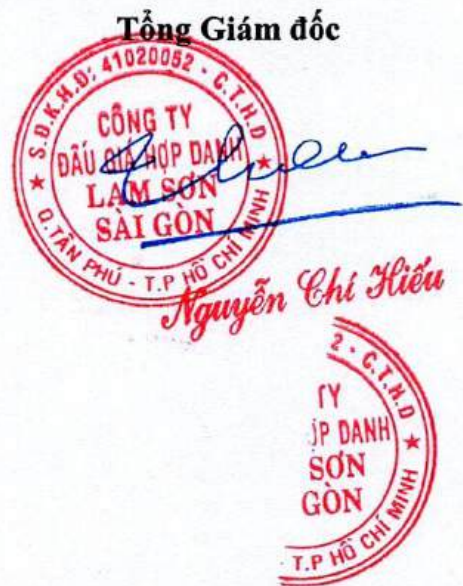 Tổng Giám đốc
S.Đ.K.H.Đ: 41020052 - C.T.H.D
CÔNG TY
ĐẤU GIÁ HỢP DANH
LAM SƠN
SÀI GÒN
Q.TÂN PHÚ - T.P HỒ CHÍ MINH
Nguyễn Chí Hiếu
2 - C.T.H.D
TY
ỢP DANH
SƠN
GÒN
T.P HỒ CHÍ MINH